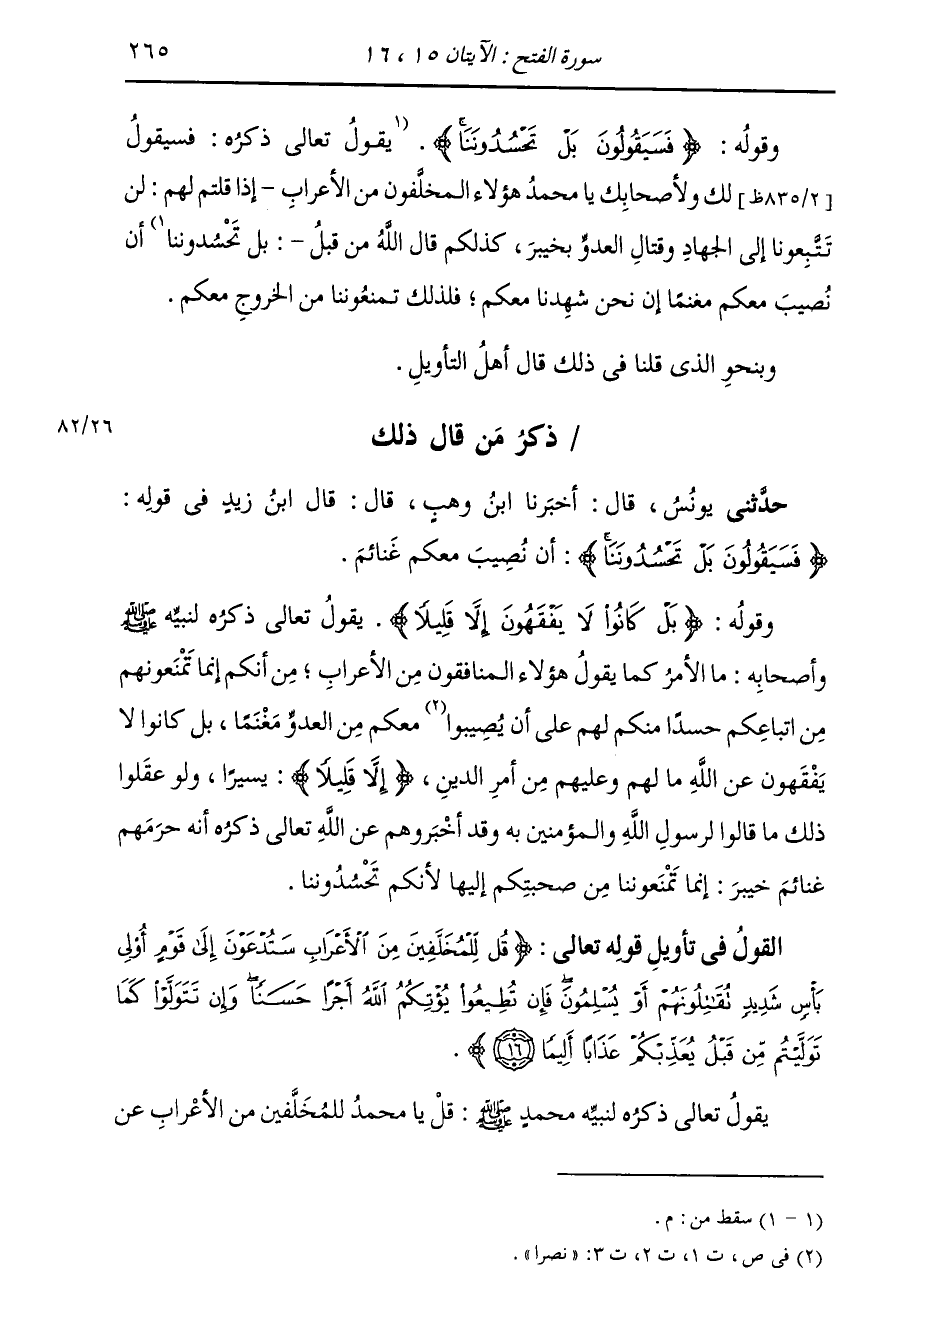 سورة الفتح : الآيتان ١٥ ، ١٦ ٢٦٥
وقولُه : ﴿ فَسَيَقُولُونَ بَلْ تَحْسُدُونَنَا ﴾ . (١يقولُ تعالى ذكرُه : فسيقولُ
[٨٣٥/٢ظ] لك ولأصحابِك يا محمدُ هؤلاء المخلَّفون من الأعرابِ – إذا قلتم لهم : لن
تَتَّبِعونا إلى الجهادِ وقتالِ العدوِّ بخيبرَ ، كذلكم قال اللَّهُ من قبلُ – : بل تَحْسُدوننا١) أن
نُصيبَ معكم مغنمًا إن نحن شهِدنا معكم ؛ فلذلك تمنعُوننا من الخروجِ معكم .
وبنحوِ الذى قلنا فى ذلك قال أهلُ التأويلِ .
/ ذكرُ مَن قال ذلك ٨٢/٢٦
حدَّثنى يونُسُ ، قال : أخبَرنا ابنُ وهبٍ ، قال : قال ابنُ زيدٍ فى قولِه :
﴿ فَسَيَقُولُونَ بَلْ تَحْسُدُونَنَا ﴾ : أن نُصِيبَ معكم غَنائمَ .
وقولُه : ﴿ بَلْ كَانُوا۟ لَا يَفْقَهُونَ إِلَّا قَلِيلًا ﴾ . يقولُ تعالى ذكرُه لنبيِّه ﷺ
وأصحابِه : ما الأمرُ كما يقولُ هؤلاء المنافقون مِن الأعرابِ ؛ مِن أنكم إنما تَمْنَعونهم
مِن اتباعِكم حسدًا منكم لهم على أن يُصِيبوا(٢) معكم مِن العدوِّ مَغْنَمًا ، بل كانوا لا
يَفْقَهون عن اللَّهِ ما لهم وعليهم مِن أمرِ الدينِ ، ﴿ إِلَّا قَلِيلًا ﴾ : يسيرًا ، ولو عقَلوا
ذلك ما قالوا لرسولِ اللَّهِ والمؤمنين به وقد أخْبَروهم عن اللَّهِ تعالى ذكرُه أنه حرَمَهم
غنائمَ خيبرَ : إنما تَمْنَعوننا مِن صحبتِكم إليها لأنكم تَحْسُدُوننا .
القولُ فى تأويلِ قولِه تعالى : ﴿ قُل لِّلْمُخَلَّفِينَ مِنَ ٱلْأَعْرَابِ سَتُدْعَوْنَ إِلَىٰ قَوْمٍ أُو۟لِى
بَأْسٍ شَدِيدٍ تُقَـٰتِلُونَهُمْ أَوْ يُسْلِمُونَ ۖ فَإِن تُطِيعُوا۟ يُؤْتِكُمُ ٱللَّهُ أَجْرًا حَسَنًا ۖ وَإِن تَتَوَلَّوْا۟ كَمَا
تَوَلَّيْتُم مِّن قَبْلُ يُعَذِّبْكُمْ عَذَابًا أَلِيمًا ١٦ ﴾ .
يقولُ تعالى ذكرُه لنبيِّه محمدٍ ﷺ : قلْ يا محمدُ للمُخَلَّفين من الأعْرابِ عن
(١ – ١) سقط من : م .
(٢) فى ص ، ت ١، ت ٢، ت ٣: «نصرا» .